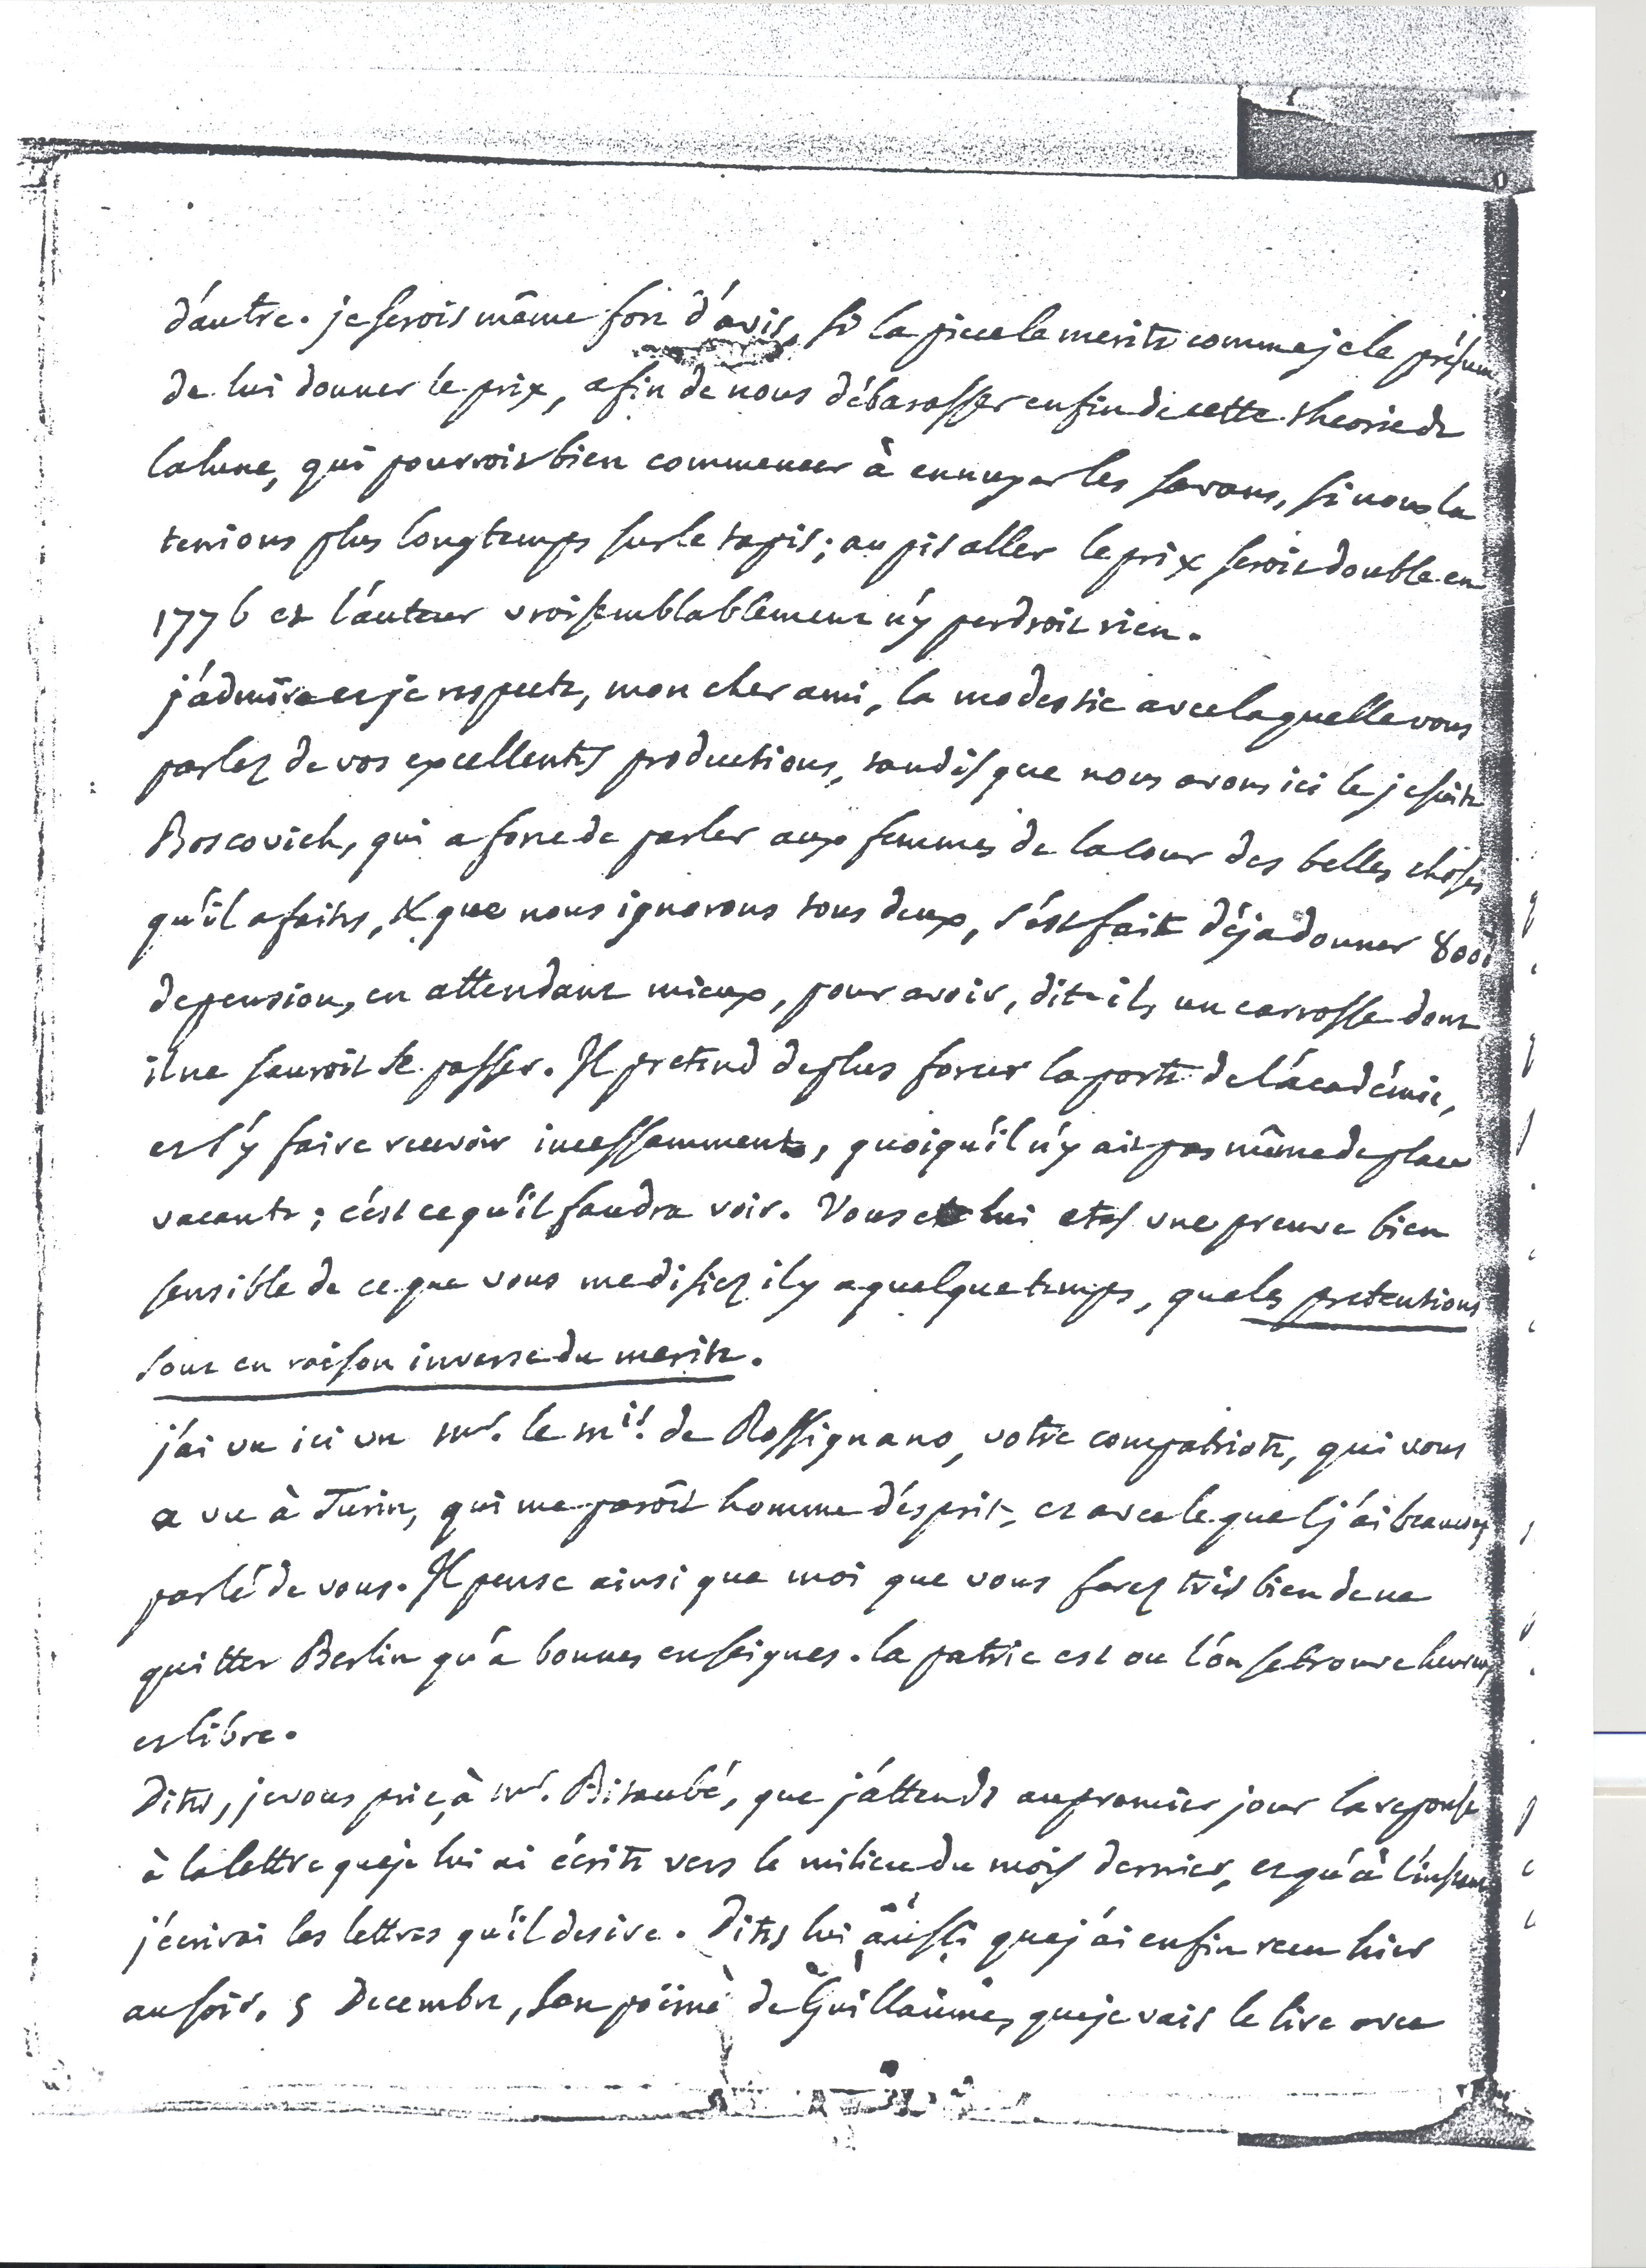 d'autre. je serois même fort d'avis, si la piece le merite comme je le présume
de lui donner le prix, afin de nous débarasser enfin de cette theorie de
la lune, qui pourroit bien commencer à ennuyer les savans, si nous la
tenions plus longtemps sur le tapis; au pis aller le prix seroit double en
1776 et l'auteur vraisemblablement n'y perdroit rien.
j'admire et je respecte, mon cher ami, la modestie avec laquelle vous
parlez de vos excellentes productions, tandis que nous avons ici le jesuite
Boscovich, qui a force de parler aux femmes de la cour des belles choses
qu'il a faites, & que nous ignorons tous deux, s'est fait déja donner 8000
de pension, en attendant mieux, pour avoir, dit-il, un carrosse dont
il ne sauroit se passer. Il pretend de plus forcer la porte de l'académie,
et s'y faire recevoir incessamment, quoiqu'il n'y ait pas même de place
vacante; c'est ce qu'il faudra voir. Vous et lui etes une preuve bien
sensible de ce que vous me disiez il y a quelque temps, que les pretentions
sont en raison inverse du merite.
j'ai vu ici un mr. le mis. de Rossignano, votre compatriote, qui vous
a vu à Turin, qui me paroît homme d'esprit, et avec lequel j'ai beaucoup
parlé de vous. Il pense ainsi que moi que vous ferez très bien de ne
quitter Berlin qu'a bonnes enseignes. la patrie est ou l'on se trouve heureux
et libre.
Dites, je vous prie, à mr. Bitaubé, que j'attends au premier jour la reponse
à la lettre que je lui ai écrite vers le milieu du mois dernier, et qu'à l'instant
j'écrirai les lettres qu'il desire. Dites lui aussi que j'ai enfin recu hier
au soir, 5 Decembre, son poëme de Guillaume, que je vais le lire avec